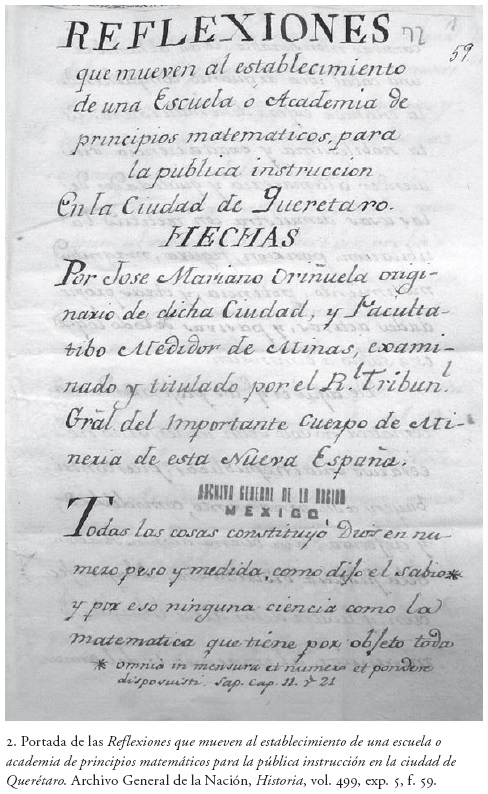 REFLEXIONES
59.
que mueven al establecimiento
de una Escuela ó Academia de
principios matematicos, para
la publica instruccion
En la Ciudad de Queretaro.
HECHAS
Por Jose Mariano Oriñuela origi-
nario de dicha Ciudad, y Faculta-
tibo Medidor de Minas, exami-
nado y titulado por el R.l Tribun.l
Grãl del Importante Cuerpo de Mi-
neria de esta Nueva España.
ARCHIVO GENERAL DE LA NACION
MEXICO
Todas las cosas constituyó Dios en nu-
mero peso y medida, como dijo el sabio*
y por eso ninguna ciencia como la
matematica que tiene por objeto toda
* omnia in mensura et numero et pondere
disposuisti. Sap. Cap. 11. v. 21
2. Portada de las Reflexiones que mueven al establecimiento de una escuela o
academia de principios matemáticos para la pública instrucción en la ciudad de
Querétaro. Archivo General de la Nación, Historia, vol. 499, exp. 5, f. 59.